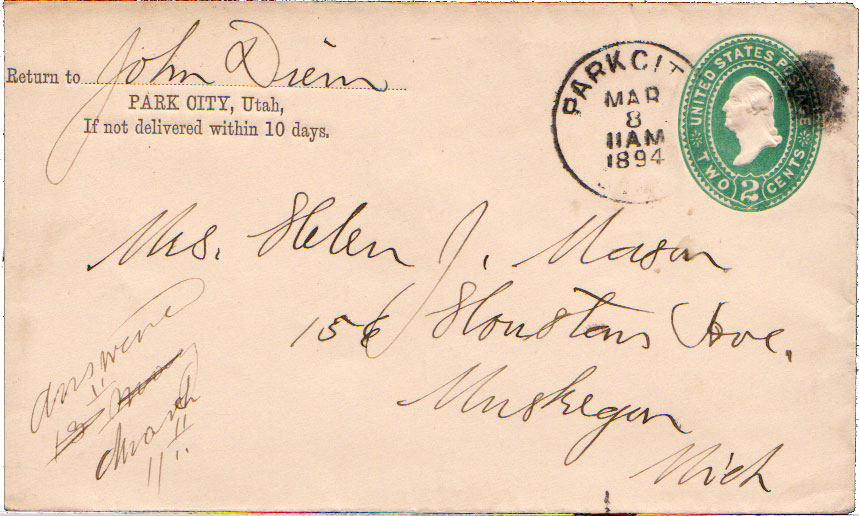 Return to John Diem
PARK CITY, Utah,
If not delivered within 10 days.
PARK CIT
MAR
8
11AM
1894
UNITED STATES POSTAGE
TWO 2 CENTS
Mrs. Helen J. Mason
156 Houston Ave.
Muskegon
Mich
answered
March
11